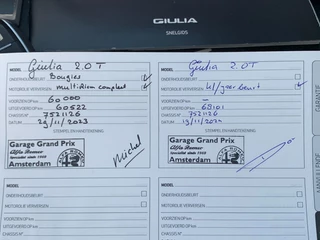 GIULIA
SNELGIDS
MODEL Giulia 2.0T
ONDERHOUDSBEURT Bougies
MOTOROLIE VERVERSEN multiriem compleet
VOORZIEN OP km 60 000
UITGEVOERD OP km 60522
CHASSIS Nº 7521126
DATUM 29/11/2023
STEMPEL EN HANDTEKENING
Garage Grand Prix
Alfa Romeo
Specialist sinds 1968
Amsterdam
Michel
MODEL
ONDERHOUDSBEURT
MOTOROLIE VERVERSEN
VOORZIEN OP km
UITGEVOERD OP km
CHASSIS Nº
DATUM
MODEL Giulia 2.0T
ONDERHOUDSBEURT
MOTOROLIE VERVERSEN
VOORZIEN OP km –
UITGEVOERD OP km
CHASSIS Nº 7521126
DATUM
STEMPEL EN HANDTEKENING
Garage Grand Prix
Alfa Romeo
Specialist sinds 1968
Amsterdam
MODEL
ONDERHOUDSBEURT
MOTOROLIE VERVERSEN
VOORZIEN OP km
UITGEVOERD OP km
CHASSIS Nº
DATUM
GARANTIE